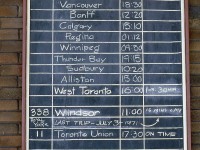 Vancouver 18:30
Banff 12:20
Calgary 15:10
Regina 01:12
Winnipeg 09:30
Thunder Bay 19:15
Sudbury 10:20
Alliston 15:00
West Toronto 16:00
338 Windsor 11:00
LAST TRIP - JULY 3
11 Toronto Union 17:30 ON TIME